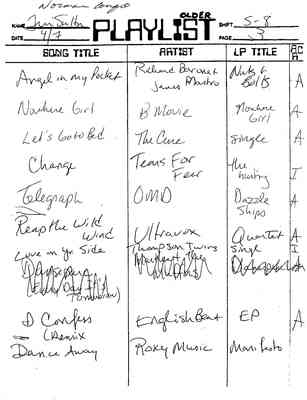 Norman
NAME
OLDER
PLAYLIST
SHIFT 5-8
DATE 4/7
PAGE 3
SONG TITLE ARTIST LP TITLE
Angel in my Pocket Richard Barone James Mastro Nuts & Bolts A
Nowhere Girl B Movie Nowhere Girl A
Let's Go to Bed The Cure Single A
Change Tears For Fear the hurting I
Telegraph OMD Dazzle Ships A
Reap the Wild Wind Ultravox Quartet A
Love on Yr Side Thompson Twins Single I
I Confess Remix English Beat EP A
Dance Away Roxy Music Manifesto